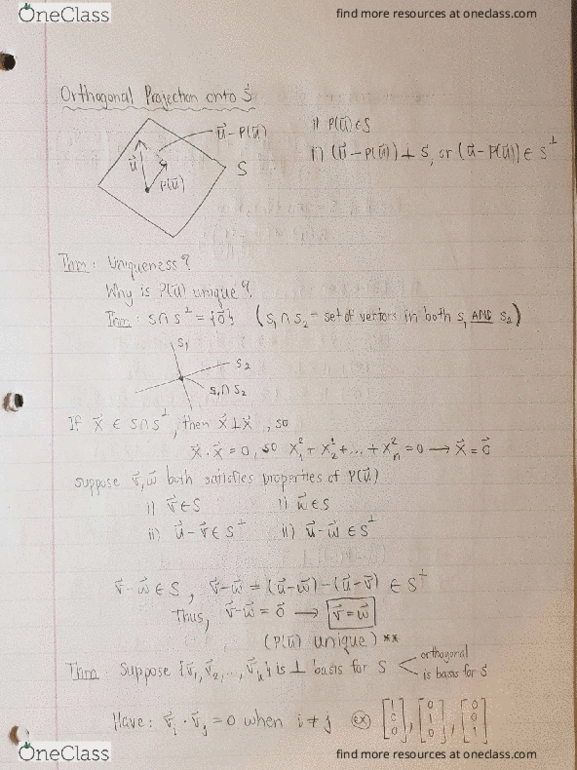 OneClass
find more resources at oneclass.com
Orthogonal Projection onto S
u⃗ - P(u⃗)
u⃗
P(u⃗)
S
i) P(u⃗) ∈ S
ii) (u⃗ - P(u⃗)) ⊥ S, or (u⃗ - P(u⃗)) ∈ S^⊥
Thm: Uniqueness?
Why is P(u⃗) unique?
Thm: S ∩ S^⊥ = {0⃗} (S₁ ∩ S₂ = set of vectors in both S₁ AND S₂)
S₁
S₂
S₁ ∩ S₂
If x⃗ ∈ S ∩ S^⊥, then x⃗ ⊥ x⃗, so
x⃗ · x⃗ = 0, so x₁² + x₂² + ... + xₙ² = 0 → x⃗ = 0⃗
Suppose v⃗, w⃗ both satisfies properties of P(u⃗)
i) v⃗ ∈ S i) w⃗ ∈ S
ii) u⃗ - v⃗ ∈ S^⊥ ii) u⃗ - w⃗ ∈ S^⊥
v⃗ - w⃗ ∈ S, v⃗ - w⃗ = (u⃗ - w⃗) - (u⃗ - v⃗) ∈ S^⊥
Thus, v⃗ - w⃗ = 0⃗ → v⃗ = w⃗
(P(u⃗) unique) **
Thm: Suppose {v⃗₁, v⃗₂, ..., v⃗ₖ} is ⊥ basis for S < orthogonal
is basis for S
Have: v⃗ᵢ · v⃗ⱼ = 0 when i ≠ j ex) [1 0 0], [0 1 0], [0 0 1]
OneClass
find more resources at oneclass.com